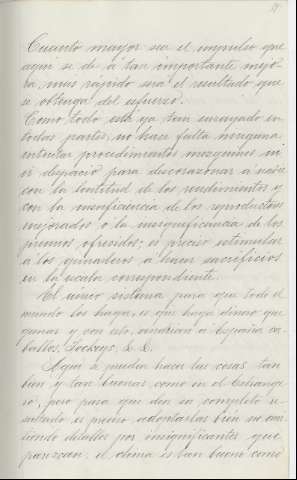 Cuanto mayor sea el impulso que
aquí se dé á tan importante mejo-
ra, mas rápido será el resultado que
se obtenga del esfuerzo.
Como todo está ya tan ensayado en
todas partes, no hace falta ninguna
intentar procedimientos mezquinos ni
ir despacio para descorazonar á nadie
con la lentitud de los rendimientos y
con la insuficiencia de los reproductores
mejorados ó la insignificancia de los
premios ofrecidos; es preciso estimular
á los ganaderos á hacer sacrificios
en la escala correspondiente.
El unico sistema para que todo el
mundo los haga, es que haya dinero que
ganar y con esto, vendrian á España ca-
ballos, Jockeys, &. &.
Aquí se pueden hacer las cosas tan
bien y tan buenas como en el Estrange-
ro, pero para que den su completo re-
sultado es preciso adoptarlas bien no omi-
tiendo detalles por insignificantes que
parezcan: el clima es tan bueno como